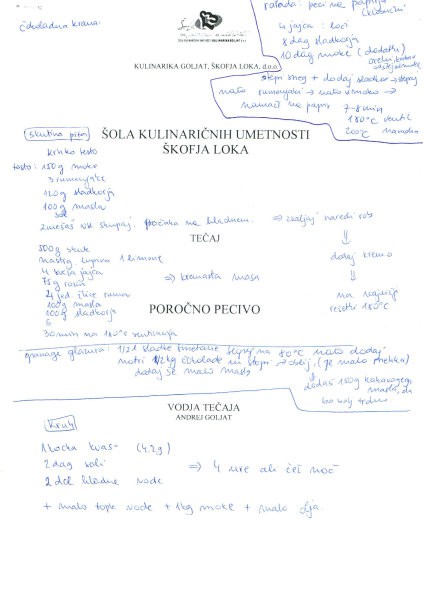 čokoladna krema
rolada: peci na papirju
4 jajca : loči
8 dag sladkorja
10 dag moke (dodatki
KULINARIKA GOLJAT, ŠKOFJA LOKA, d.o.o.
stepi sneg + dodaj sladkor → stepaj
nato rumenjaki → nato z moko →
namaži na papir 7-8 min
180°C ventil
200°C navadna
skutina pita
ŠOLA KULINARIČNIH UMETNOSTI
ŠKOFJA LOKA
krhko testo
testo: 150g moke
3 rumenjake
120g sladkorja
100g masla
sol
zmešaš vse skupaj. počitka na hladnem. ⇒ zvaljaj naredi rob
TEČAJ
500g skute
nastrg. lupina 1 limone
4 cela jajca ⇒ kremasta masa
75g rozin
2 jed. žlice ruma
100g masla
100g sladkorja
30 min na 180°C
dodaj kremo
na
rešetki 180°C
POROČNO PECIVO
ganage glazura: 1/2 l sladke smetane segrej na 80°C nato dodaj
notri 1/2 kg čokolade in stopi → ohlaj. (je malo mehka)
dodaj še malo masla
dodaš 150g kakavovega
masla, da
bo bolj trdno
VODJA TEČAJA
ANDREJ GOLJAT
Kruh
1 kocka kvas (42g)
2 dag soli ⇒ 4 ure ali čez noč
2 del hladne vode
+ malo tople vode + 1kg moke + malo olja.